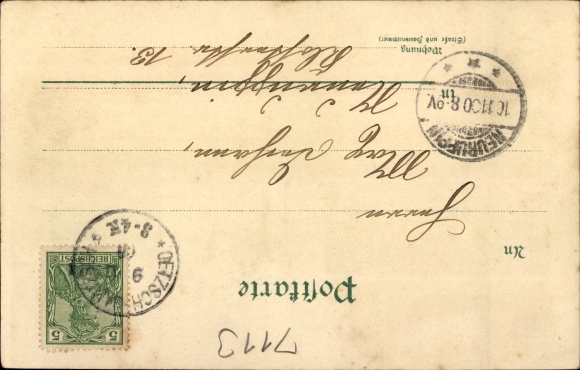 7113
Postkarte
5
REICHSPOST
5
OETZSCH
9
3-4N
An
Herrn
Max
in
Neuruppin,
Klosterstr. 13.
Wohnung
(Straße und Hausnummer)
NEURUPPIN
10.11.00.8-9V.